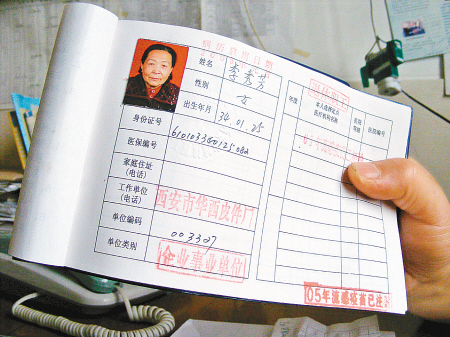 姓名 李秀芳
性别 女
出生年月 34.01.25
身份证号 610103340125082
医保编号
家庭住址
(电话)
工作单位
(电话)
西安市华西皮件厂
单位编码 003307
单位类别 企业事业单位
年度 本人选择定点
医疗机构名称 医院
等级 医院编号
05年流感疫苗已注